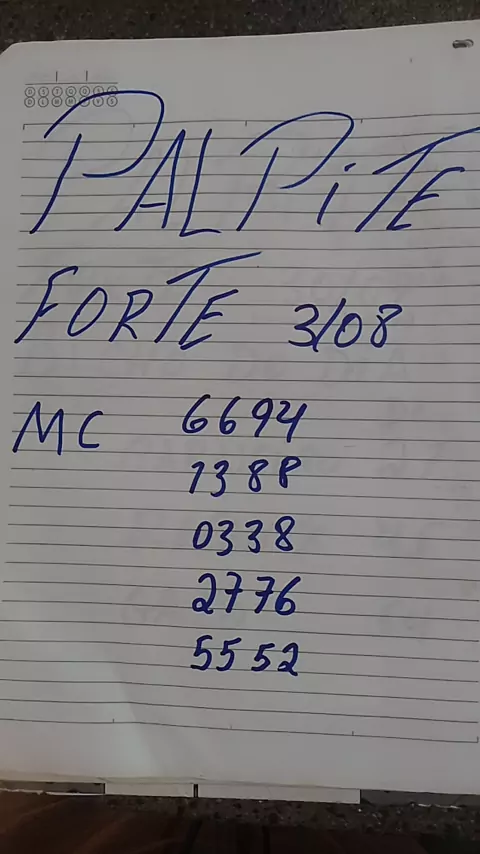 PALPiTE
FORTE 3/08
MC 6694
1388
0338
2776
5552